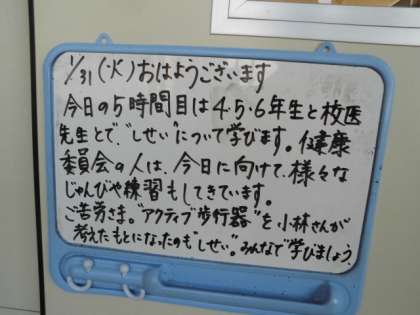 1/31(火)おはようございます
今日の5時間目は4・5・6年生と校医
先生とで、"しせい"について学びます。健康
委員会の人は、今日に向けて、様々な
じゅんびや練習もしてきています。
ご苦労さま。"アクティブ歩行器"を小林さんが
考えたもとになったのも"しせい"。みんなで学びましょう。